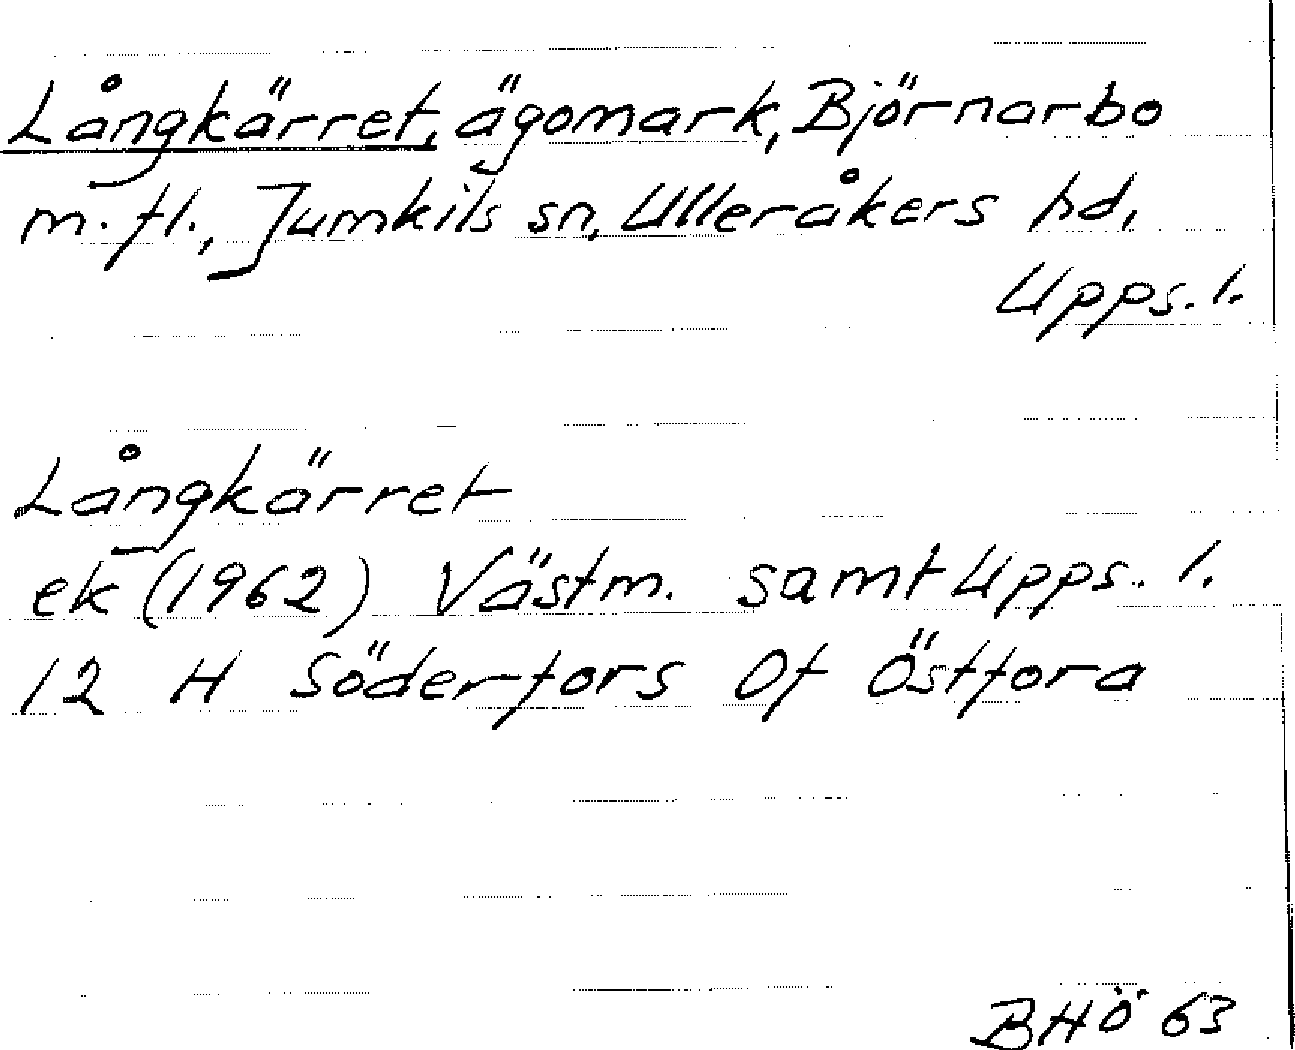 Långkärret, ägomark, Björnarbo
m. fl., Jumkils sn, Ulleråkers hd,
Upps. l.
Långkärret
ek (1962) Västm. samt Upps. l.
12 H Söderfors 0f Östfora
BHÖ 63